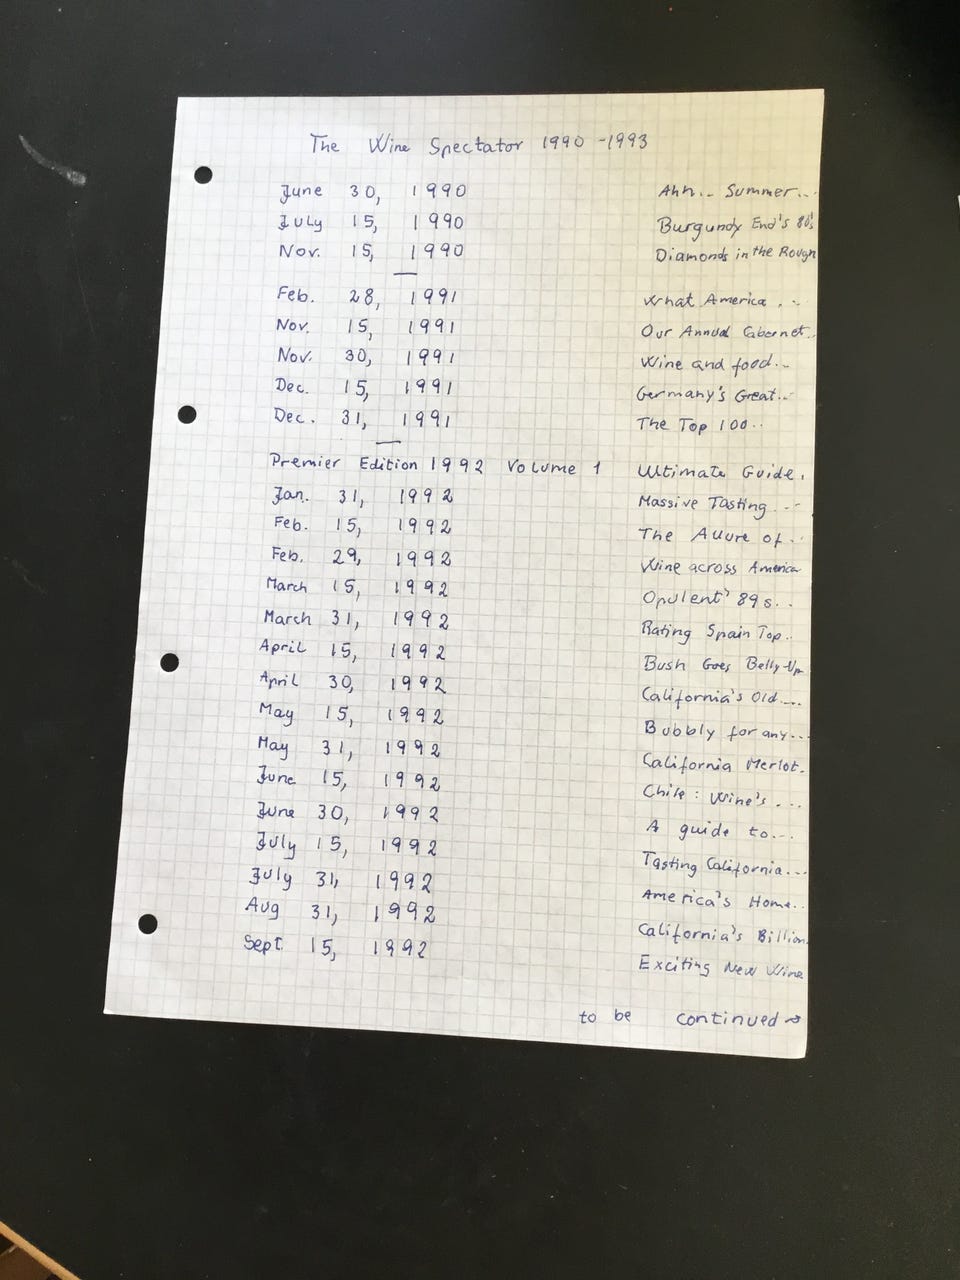 The Wine Spectator 1990 - 1993
June 30, 1990 Ahh... Summer...
July 15, 1990 Burgundy End's 80's
Nov. 15, 1990 Diamonds in the Rough
Feb. 28, 1991 What America...
Nov. 15, 1991 Our Annual Cabernet..
Nov. 30, 1991 Wine and food...
Dec. 15, 1991 Germany's Great...
Dec. 31, 1991 The Top 100..
Premier Edition 1992 Volume 1 Ultimate Guide.
Jan. 31, 1992 Massive Tasting ...
Feb. 15, 1992 The Allure of..
Feb. 29, 1992 Wine across America
March 15, 1992 Opulent' 89s..
March 31, 1992 Rating Spain Top..
April 15, 1992 Bush Goes Belly-Up
April 30, 1992 California's Old...
May 15, 1992 Bubbly for any...
May 31, 1992 California Merlot.
June 15, 1992 Chile: Wine's ...
June 30, 1992 A guide to...
July 15, 1992 Tasting California...
July 31, 1992 America's Home..
Aug 31, 1992 California's Billion.
Sept. 15, 1992 Exciting New Wine
to be continued →